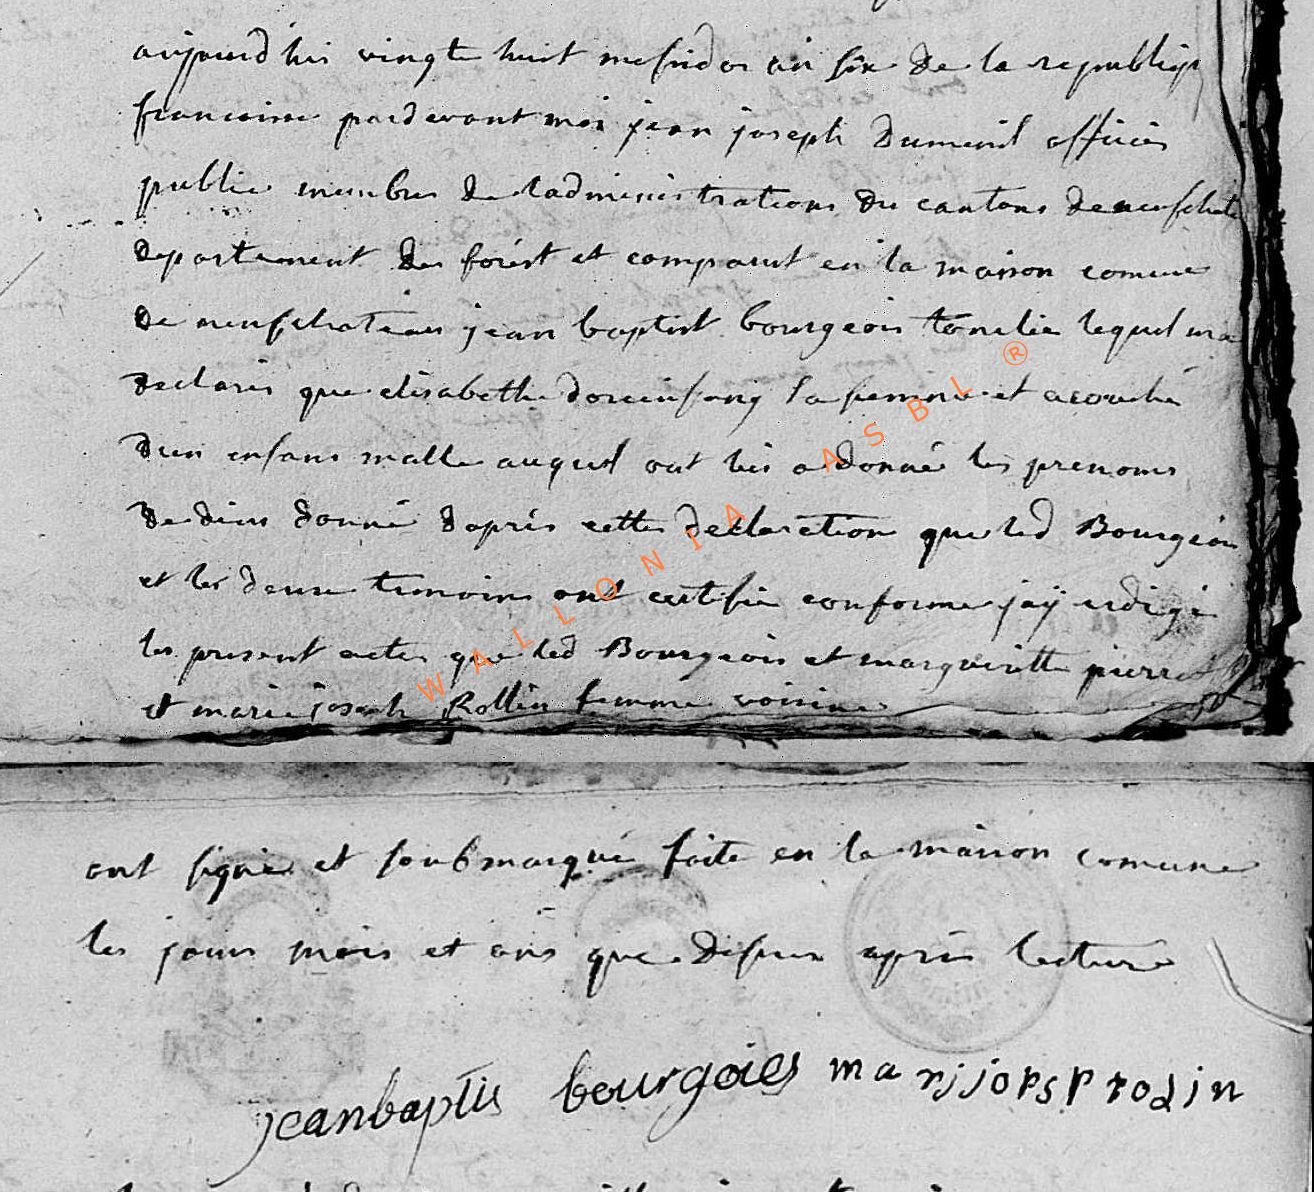 aujourd'hui vingt huit mesidor an six de la republiq
francoise pardevant moi jean joseph Dumenil officie
public membre de ladministrations du cantons de neufchate
departement des forest et comparut en la maison comune
de neufchateau jean baptist bourgeois tonelie lequel ma
declares que elisabethe dorcinfang sa femme et acouché
dun enfans malle auquel ont lui a donné les prenoms
de dieu donné daprés cette declaration que led Bourgeois
et les deux temoins ont certifie conforme jaÿ redigé
les present actes que led Bourgeois et margueritte pierret
et marie joseph Rollin femme voisine
ont signé et soubmarqué faite en la maison comune
les jours mois et ans que desus aprés lecture
jeanbaptis bourgoies marjjopsp rodin
WALLONIA ASBL ®